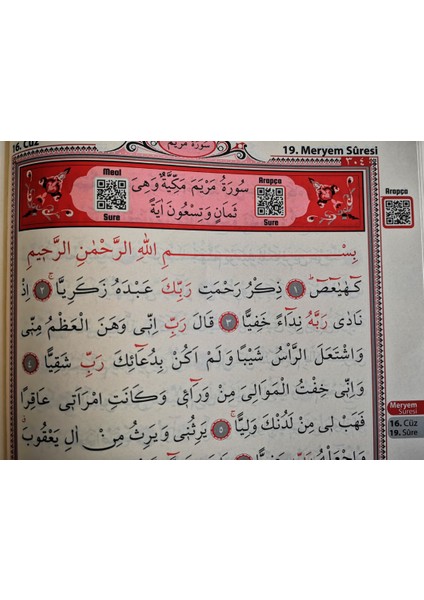 16. Cüz
سورة مريم
19. Meryem Sûresi
٣٠٤
Meal
Sure
سُورَةُ مَرْيَمَ مَكِّيَّةٌ وَهِىَ
ثَمَانٍ وَتِسْعُونَ اٰيَةً
Arapça
Sure
Arapça
بِسْمِ اللّٰهِ الرَّحْمٰنِ الرَّحِيمِ
كٓهٰيٰعٓصٓ ﴿١﴾ ذِكْرُ رَحْمَتِ رَبِّكَ عَبْدَهُ زَكَرِيَّا ﴿٢﴾ اِذْ
نَادٰى رَبَّهُ نِدَٓاءً خَفِيًّا ﴿٣﴾ قَالَ رَبِّ اِنّٖى وَهَنَ الْعَظْمُ مِنّٖى
وَاشْتَعَلَ الرَّأْسُ شَيْبًا وَلَمْ اَكُنْ بِدُعَٓائِكَ رَبِّ شَقِيًّا ﴿٤﴾
وَاِنّٖى خِفْتُ الْمَوَالِىَ مِنْ وَرَٓاءٖى وَكَانَتِ امْرَاَتٖى عَاقِرًا
فَهَبْ لٖى مِنْ لَدُنْكَ وَلِيًّا ﴿٥﴾ يَرِثُنٖى وَيَرِثُ مِنْ اٰلِ يَعْقُوبَ
وَاجْعَلْهُ
Meryem
Sûresi
16. Cüz
19. Sûre